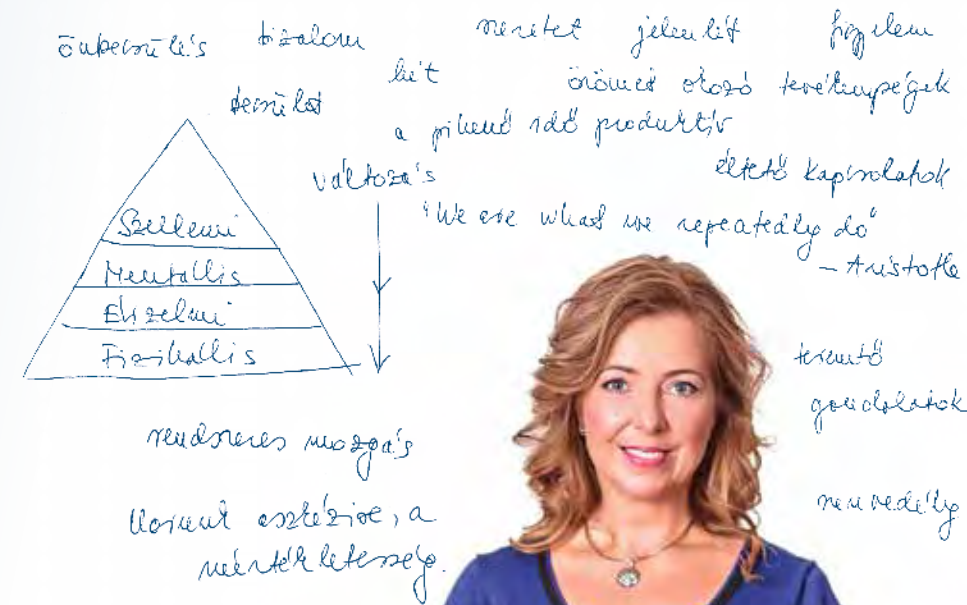 önbecsülés bizalom szeretet jelenlét figyelem
hit örömet okozó tevékenységek
becsület
a pihenő idő produktív
változás éltető kapcsolatok
"We are what we repeatedly do"
– Aristotle
Szellemi
Mentállis
Érzelmi
Fizikállis
teremtő
gondolatok
rendszeres mozgás
szenvedély
Korunk aszkézise, a
mértékletesség.